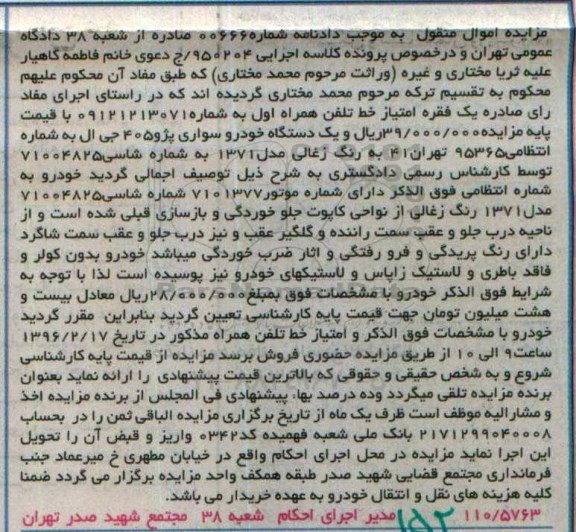 مزایده اموال منقول به موجب دادنامه شماره۰۰۶۶۶ صادره از شعبه ۳۸ دادگاه
عمومی تهران و درخصوص پرونده کلاسه اجرایی ۹۵۰۲۰۴/ج دعوی خانم فاطمه گاهیار
علیه ثریا مختاری و غیره (وراثت مرحوم محمد مختاری) که طبق مفاد آن محکوم علیهم
محکوم به تقسیم ترکه مرحوم محمد مختاری گردیده اند که در راستای اجرای مفاد
رای صادره یک فقره امتیاز خط تلفن همراه اول به شماره۰۹۱۲۱۲۱۳۰۷۱ با قیمت
پایه مزایده۳۹/۰۰۰/۰۰۰ریال و یک دستگاه خودرو سواری پژو۴۰۵ جی ال به شماره
انتظامی۹۵۳۶۵ تهران۴۱ به رنگ زغالی مدل۱۳۷۱ به شماره شاسی۷۱۰۰۴۸۲۵
توسط کارشناس رسمی دادگستری به شرح ذیل توصیف اجمالی گردید خودرو به
شماره انتظامی فوق الذکر دارای شماره موتور۷۱۰۱۳۷۷ شماره شاسی۷۱۰۰۴۸۲۵
مدل۱۳۷۱ رنگ زغالی از نواحی کاپوت جلو خوردگی و بازسازی قبلی شده است و از
ناحیه درب جلو و عقب سمت راننده و گلگیر عقب و نیز درب جلو و عقب سمت شاگرد
دارای رنگ پریدگی و فرو رفتگی و اثار ضرب خوردگی میباشد خودرو بدون کولر و
فاقد باطری و لاستیک زاپاس و لاستیکهای خودرو نیز پوسیده است لذا با توجه به
شرایط فوق الذکر خودرو با مشخصات فوق بمبلغ۲۸/۰۰۰/۰۰۰ریال معادل بیست و
هشت میلیون تومان جهت قیمت پایه کارشناسی تعیین گردید بنابراین مقرر گردید
خودرو با مشخصات فوق الذکر و امتیاز خط تلفن همراه مذکور در تاریخ ۱۳۹۶/۲/۱۷
ساعت۹ الی ۱۰ از طریق مزایده حضوری فروش برسد مزایده از قیمت پایه کارشناسی
شروع و به شخص حقیقی و حقوقی که بالاترین قیمت پیشنهادی را ارائه نماید بعنوان
برنده مزایده تلقی میگردد وده درصد بهاء پیشنهادی فی المجلس از برنده مزایده اخذ
و مشارالیه موظف است ظرف یک ماه از تاریخ برگزاری مزایده الباقی ثمن را در بحساب
۲۱۷۱۲۹۹۰۴۰۰۰۸ بانک ملی شعبه فهمیده کد۰۳۴۲ واریز و قبض آن را تحویل
این اجرا نماید مزایده در محل اجرای احکام واقع در خیابان مطهری خ میرعماد جنب
فرمانداری مجتمع قضایی شهید صدر طبقه همکف واحد مزایده برگزار می گردد ضمنا
کلیه هزینه های نقل و انتقال خودرو به عهده خریدار می باشد.
۱۱۰/۵۷۶۳ مدیر اجرای احکام شعبه ۳۸ مجتمع شهید صدر تهران